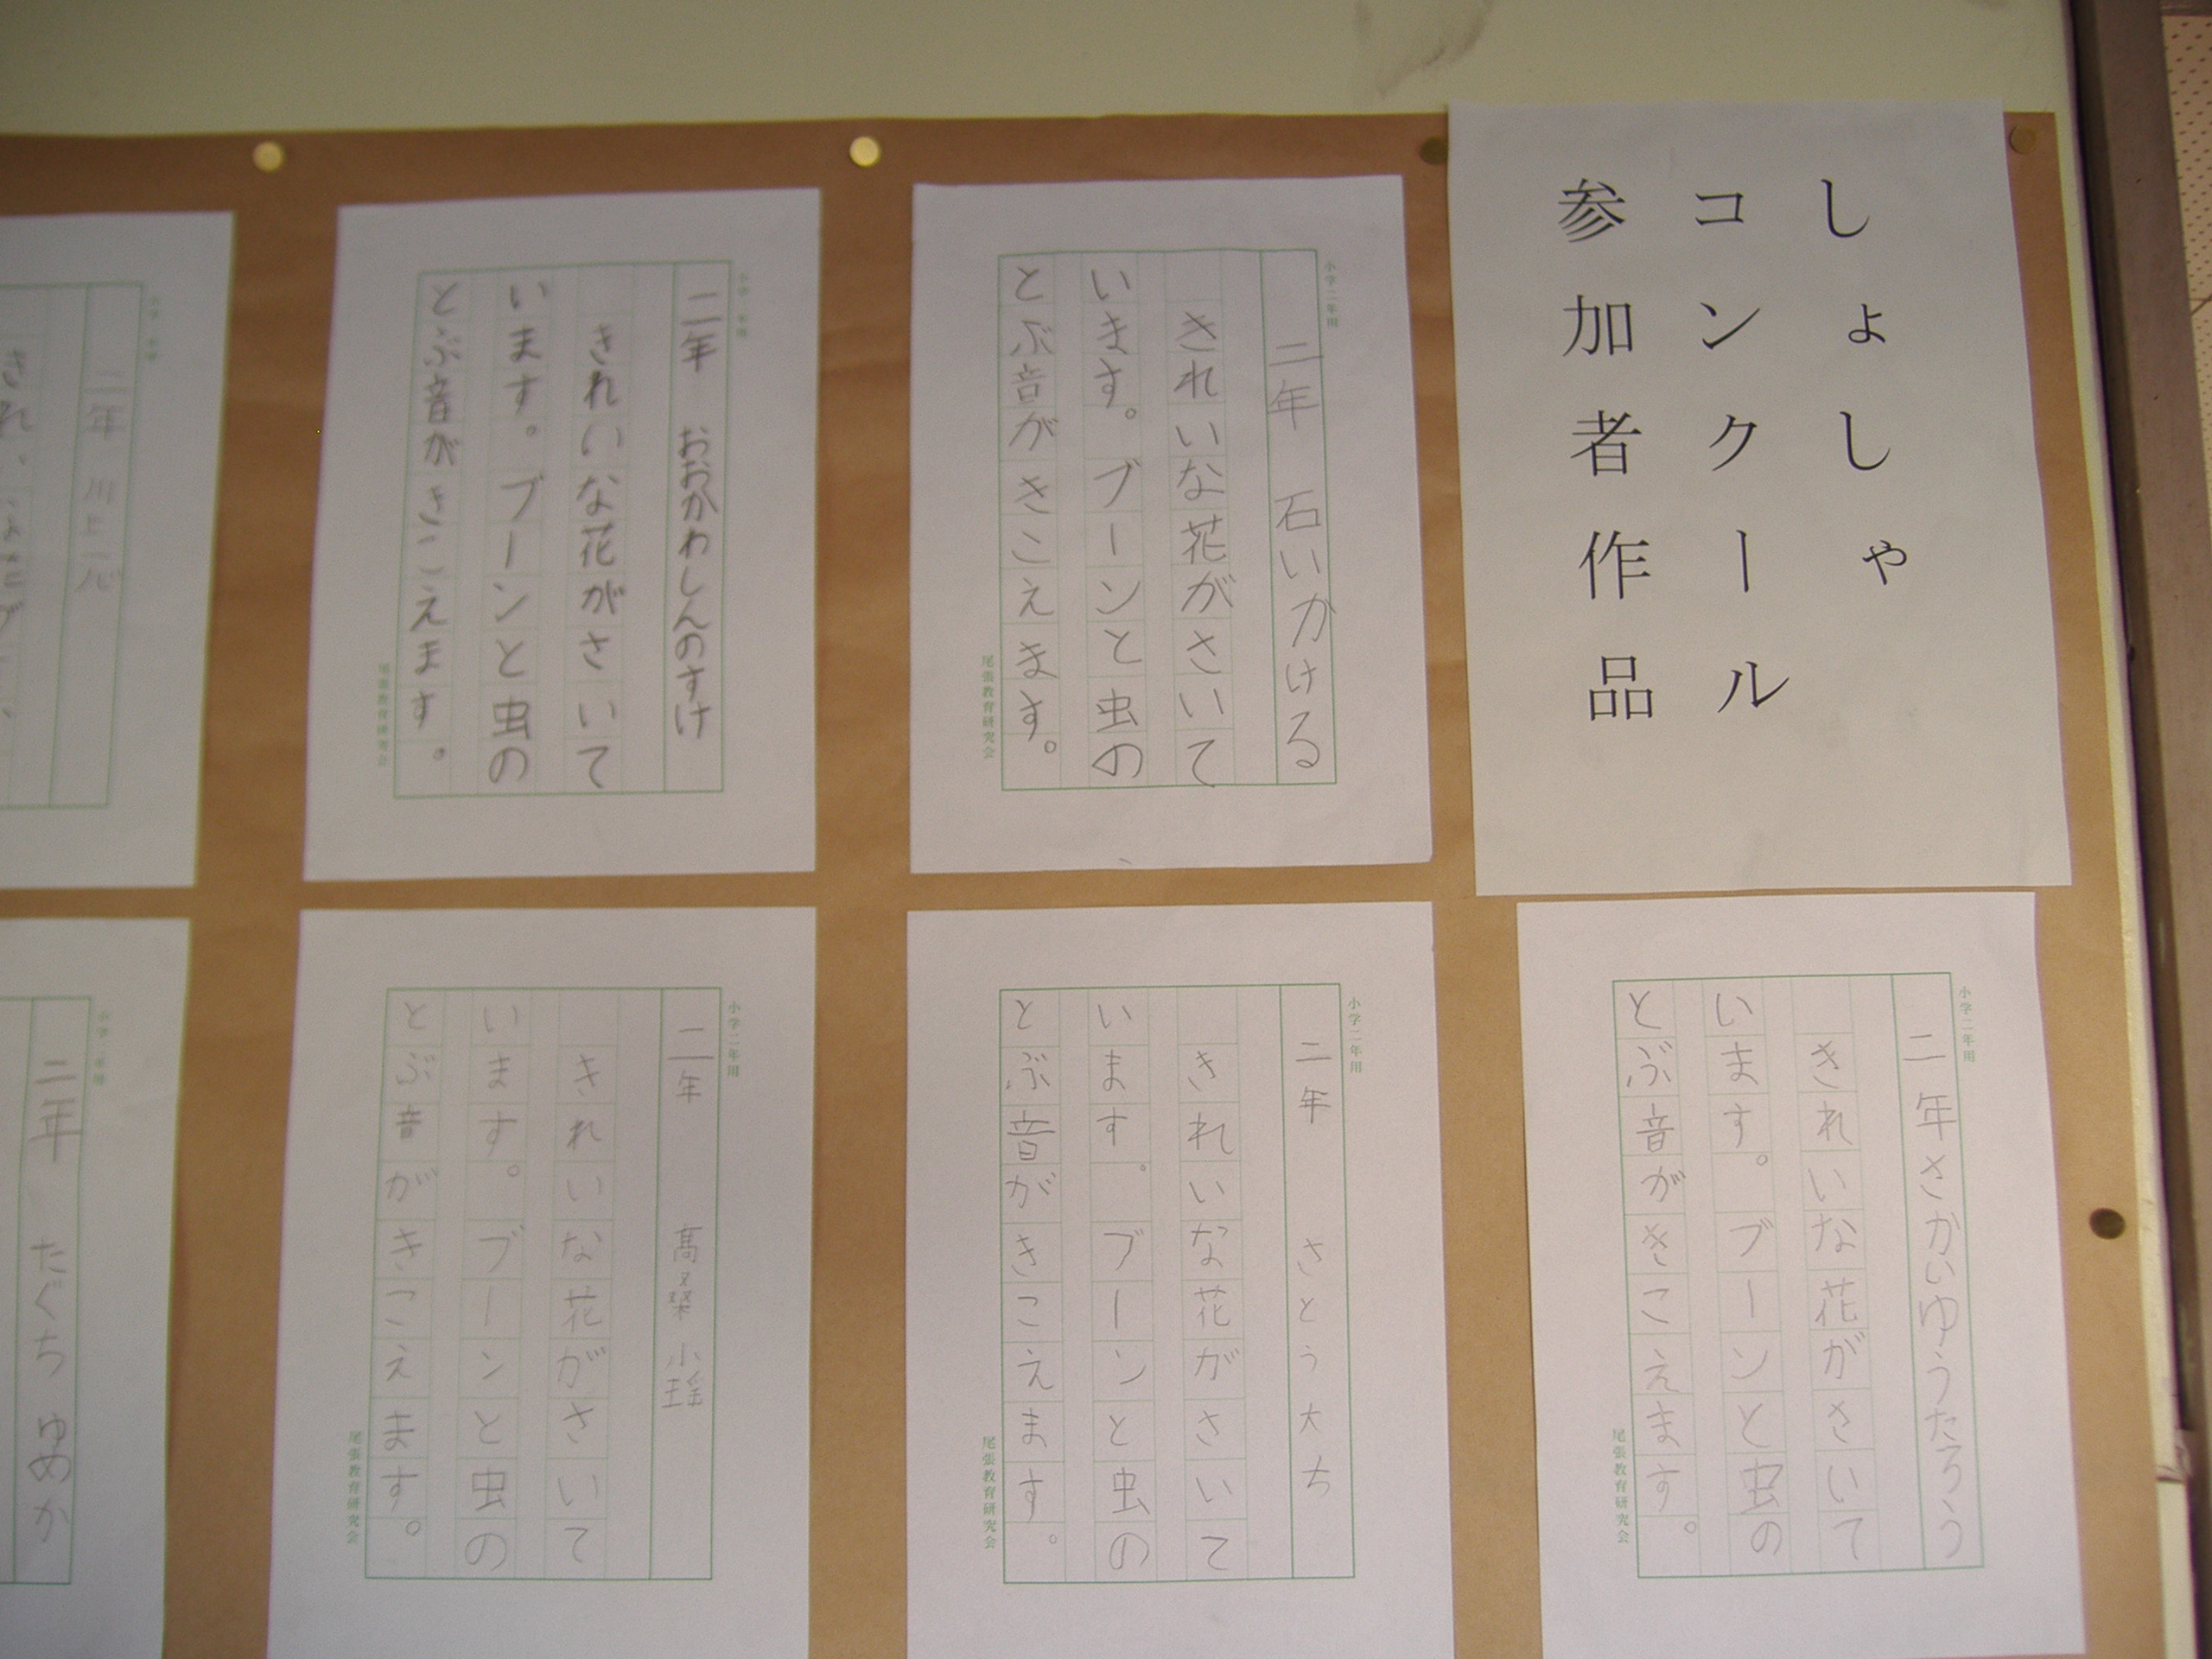 しょしゃ
コンクール
参加者作品
小学二年用
二年 石いかける
きれいな花がさいて
います。ブーンと虫の
とぶ音がきこえます。
尾張教育研究会
二年 おおかわしんのすけ
きれいな花がさいて
います。ブーンと虫の
とぶ音がきこえます。
尾張教育研究会
二年 川上心
きれい
小学二年用
二年さかいゆうたろう
きれいな花がさいて
います。ブーンと虫の
とぶ音がきこえます。
尾張教育研究会
小学二年用
二年 さとう大ち
きれいな花がさいて
います。ブーンと虫の
とぶ音がきこえます。
尾張教育研究会
小学二年用
二年 髙桑 小瑶
きれいな花がさいて
います。ブーンと虫の
とぶ音がきこえます。
尾張教育研究会
二年 たぐち ゆめか